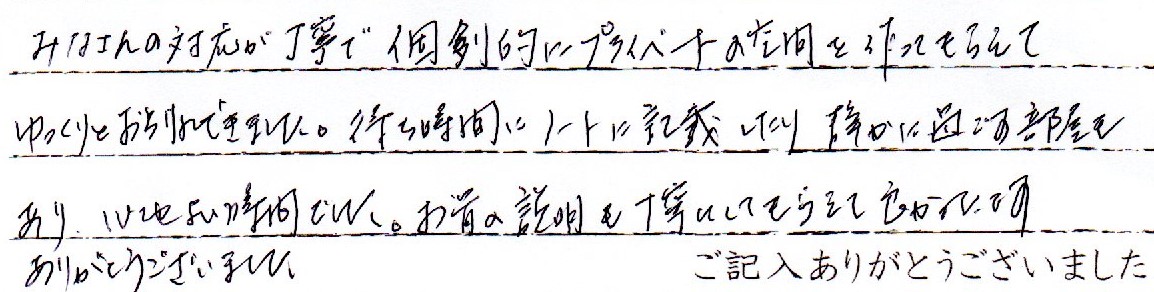 みなさんの対応が丁寧で個別的にプライベートの空間を作ってもらえて
ゆっくりとお別れできました。待ち時間にノートに記載したり静かに過ごす部屋も
あり、心地よい時間でした。お骨の説明も丁寧にしてもらえて良かったです
ありがとうございました
ご記入ありがとうございました